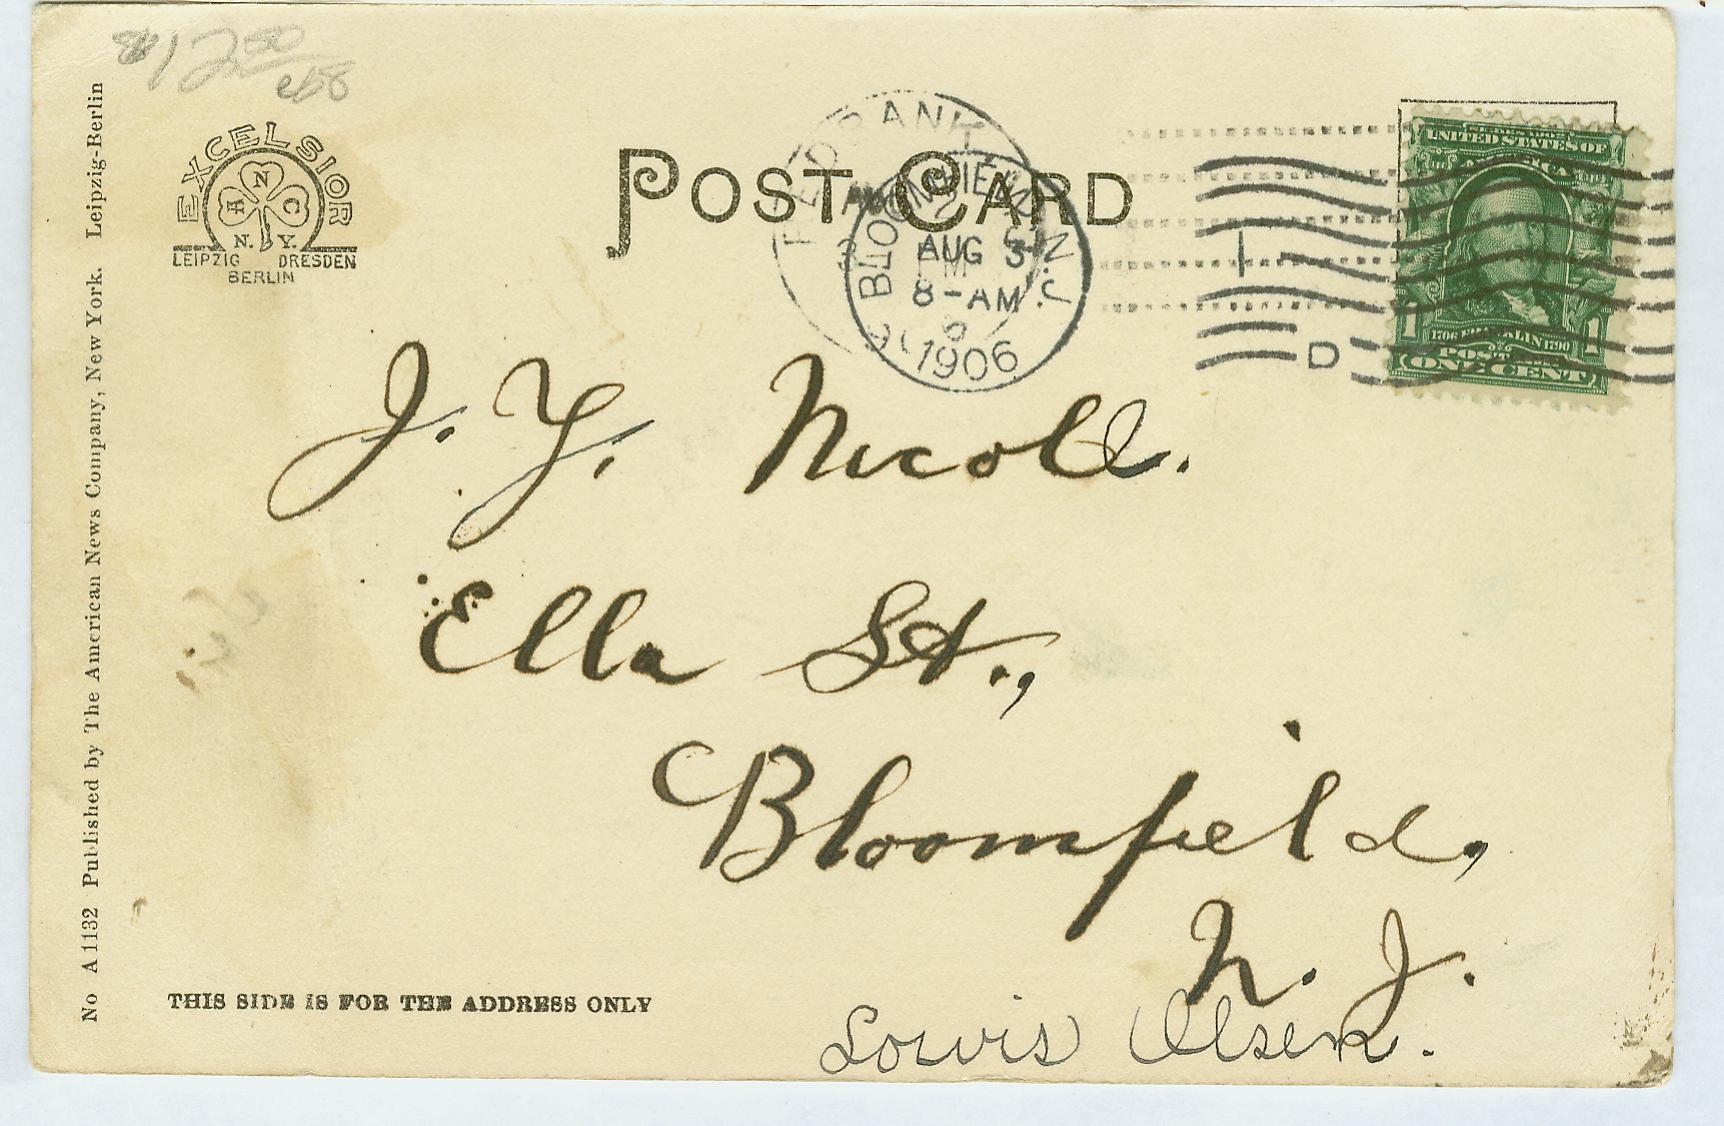 $12.50
EXCELSIOR
A N C
N. Y.
LEIPZIG DRESDEN
BERLIN
POST CARD
RED BANK
BLOOMFIELD, N.J.
AUG 3
8-AM
1906
D
UNITED STATES OF
AMERICA
1 1
1706 FRANKLIN 1790
POSTAGE
ONE CENT
J. Y. Nicoll.
Ella St.,
Bloomfield,
N. J.
Lowis Olsen.
THIS SIDE IS FOR THE ADDRESS ONLY
No A 1132 Published by The American News Company, New York. Leipzig-Berlin